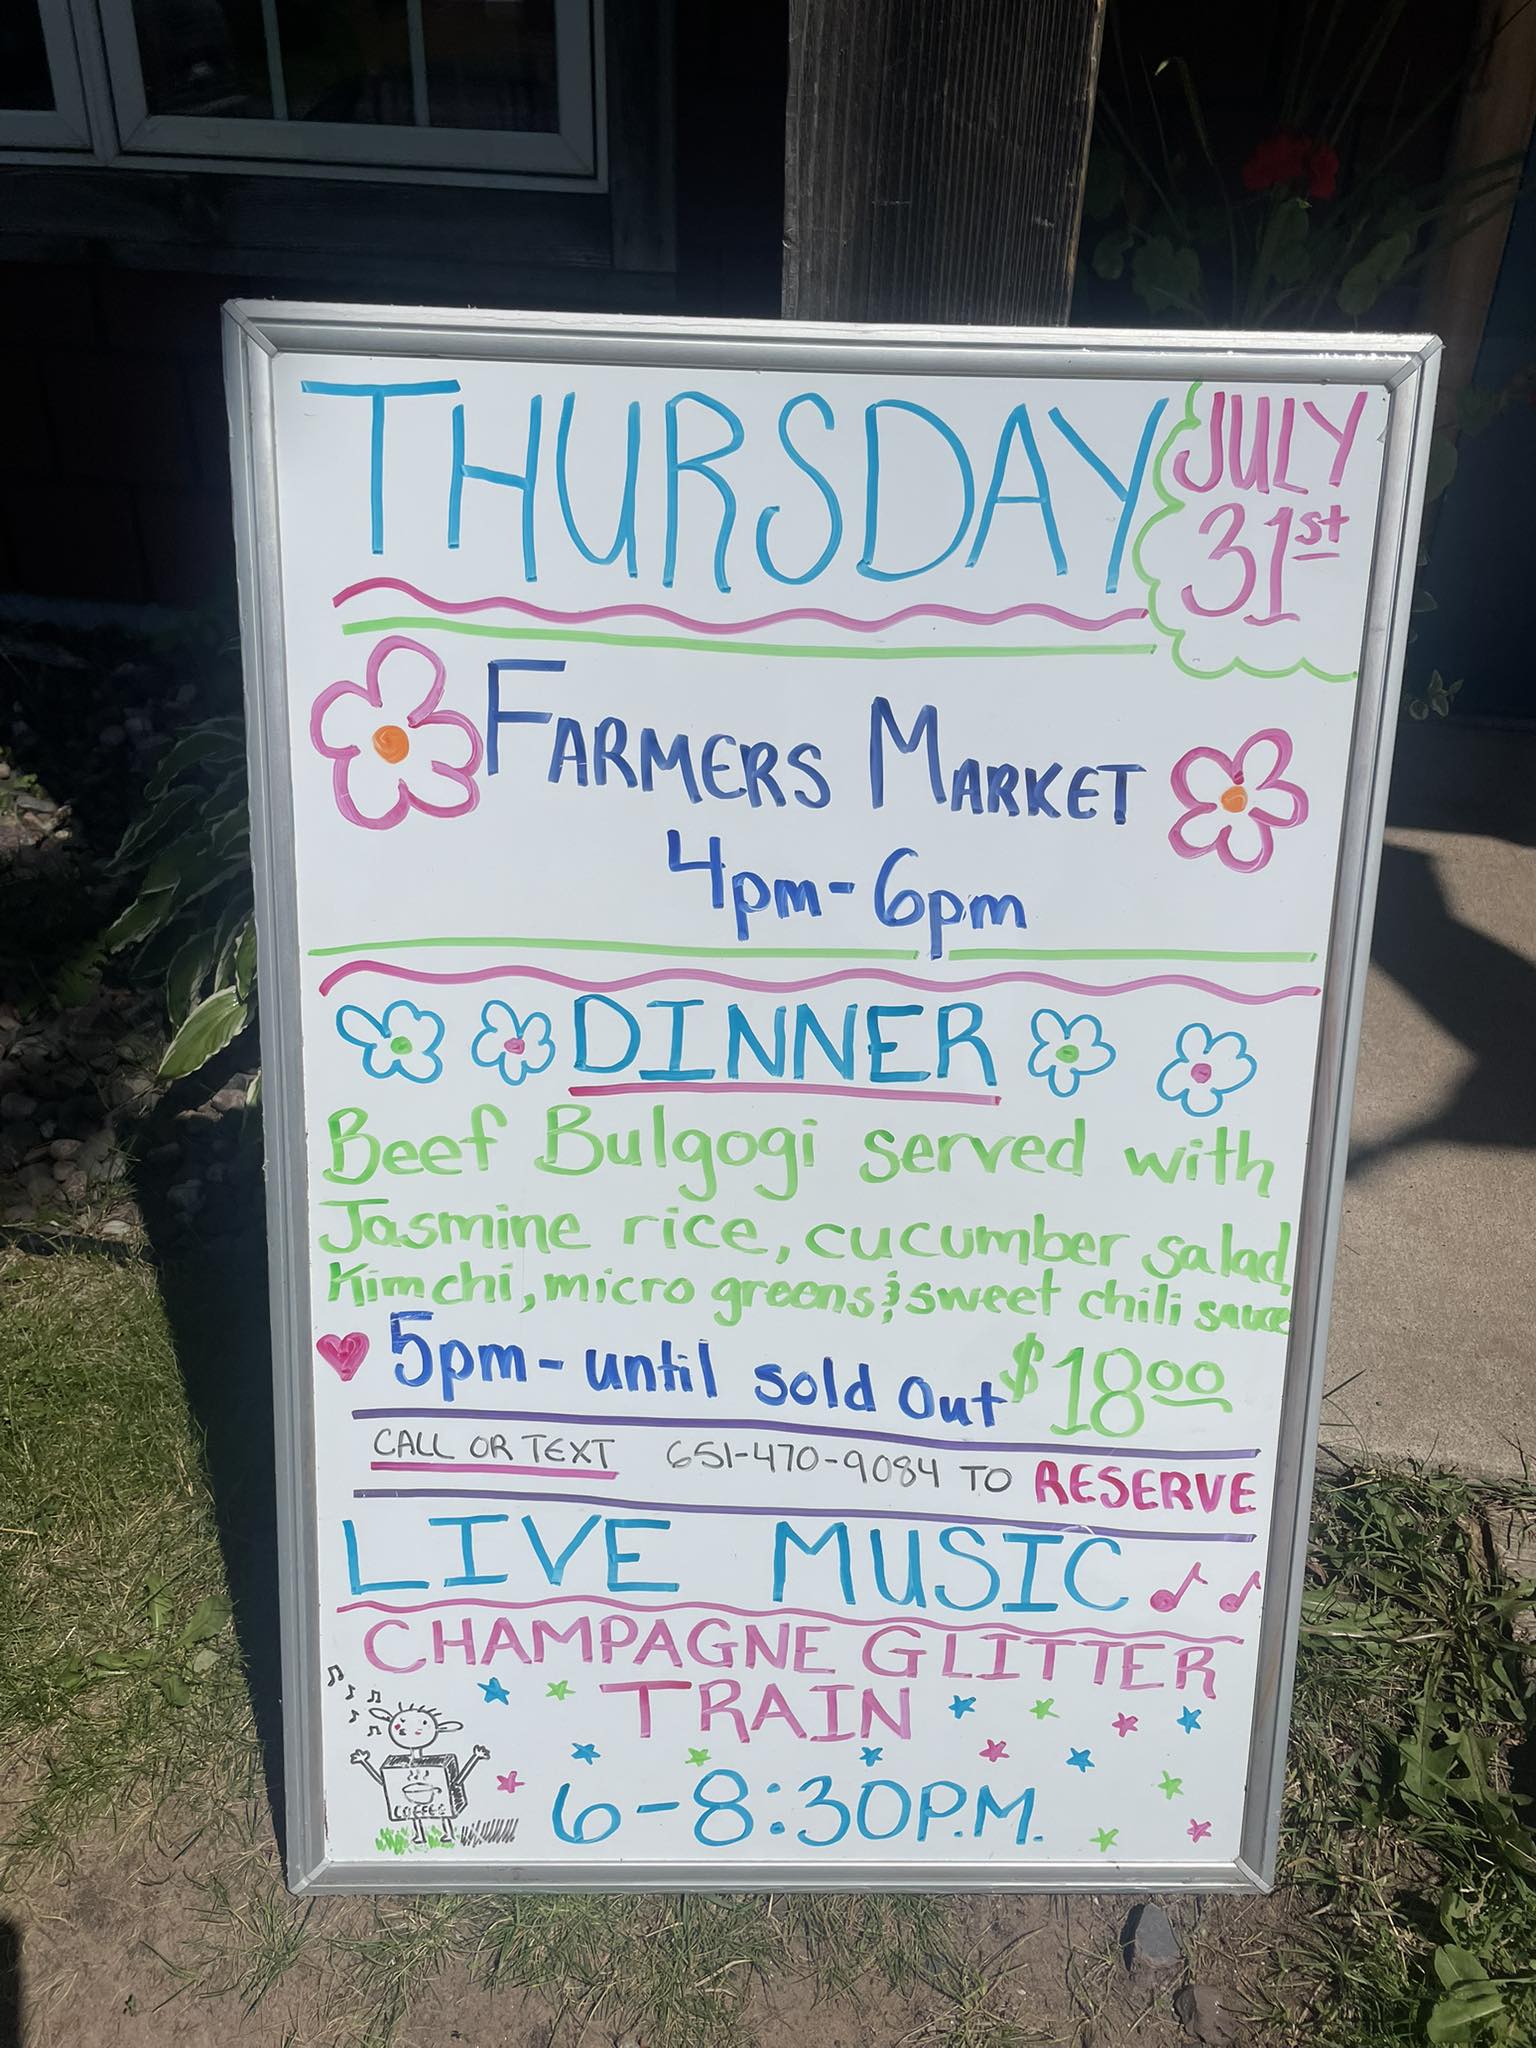 THURSDAY
JULY
31st
FARMERS MARKET
4pm-6pm
DINNER
Beef Bulgogi served with
Jasmine rice, cucumber salad,
Kimchi, micro greens & sweet chili sauce
5pm - until sold out $18.00
CALL OR TEXT 651-470-9084 TO RESERVE
LIVE MUSIC
CHAMPAGNE GLITTER
TRAIN
COFFEE
6-8:30P.M.